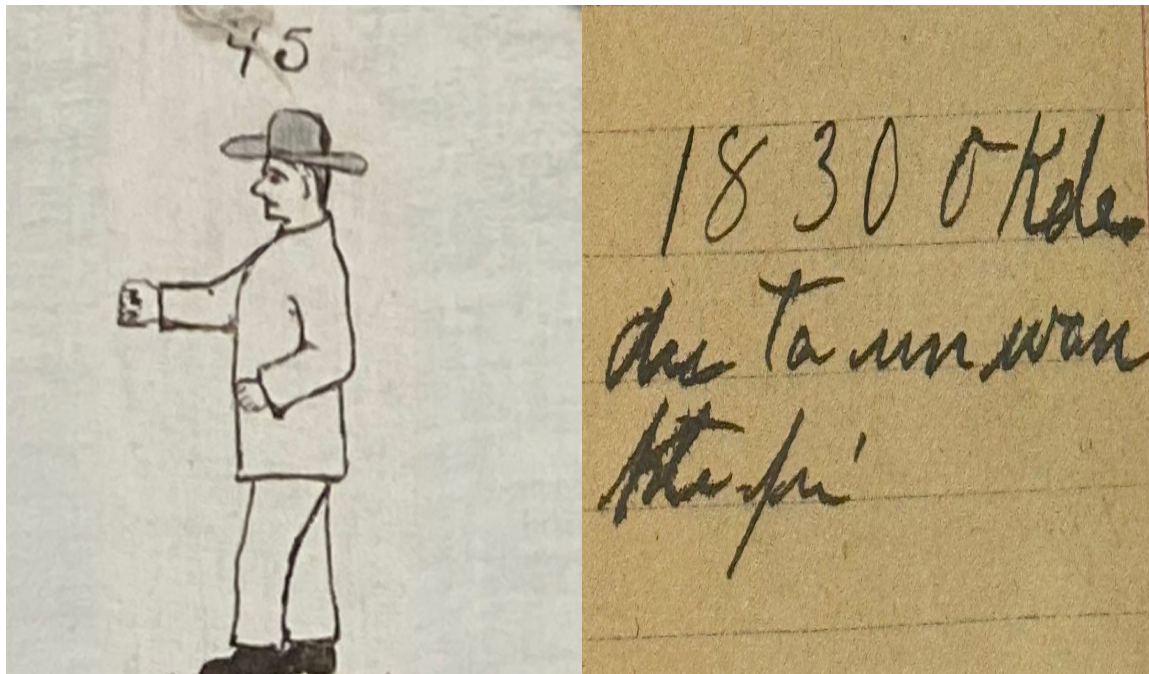 45
1830 okde
dus ta un wan
kte pi